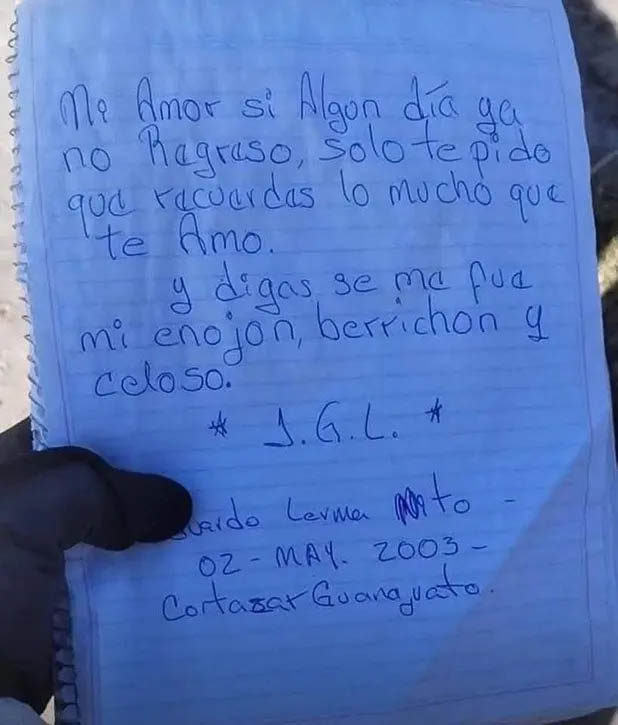 Mi Amor si Algon día ya
no Ragraso, solo te pido
que racuardas lo mucho que
te Amo.
y digas se ma fua
mi enojon, berrichon y
celoso.
* J.G.L. *
uardo Lerma Nito -
02 - MAY. 2003 -
Cortazar Guanajuato.